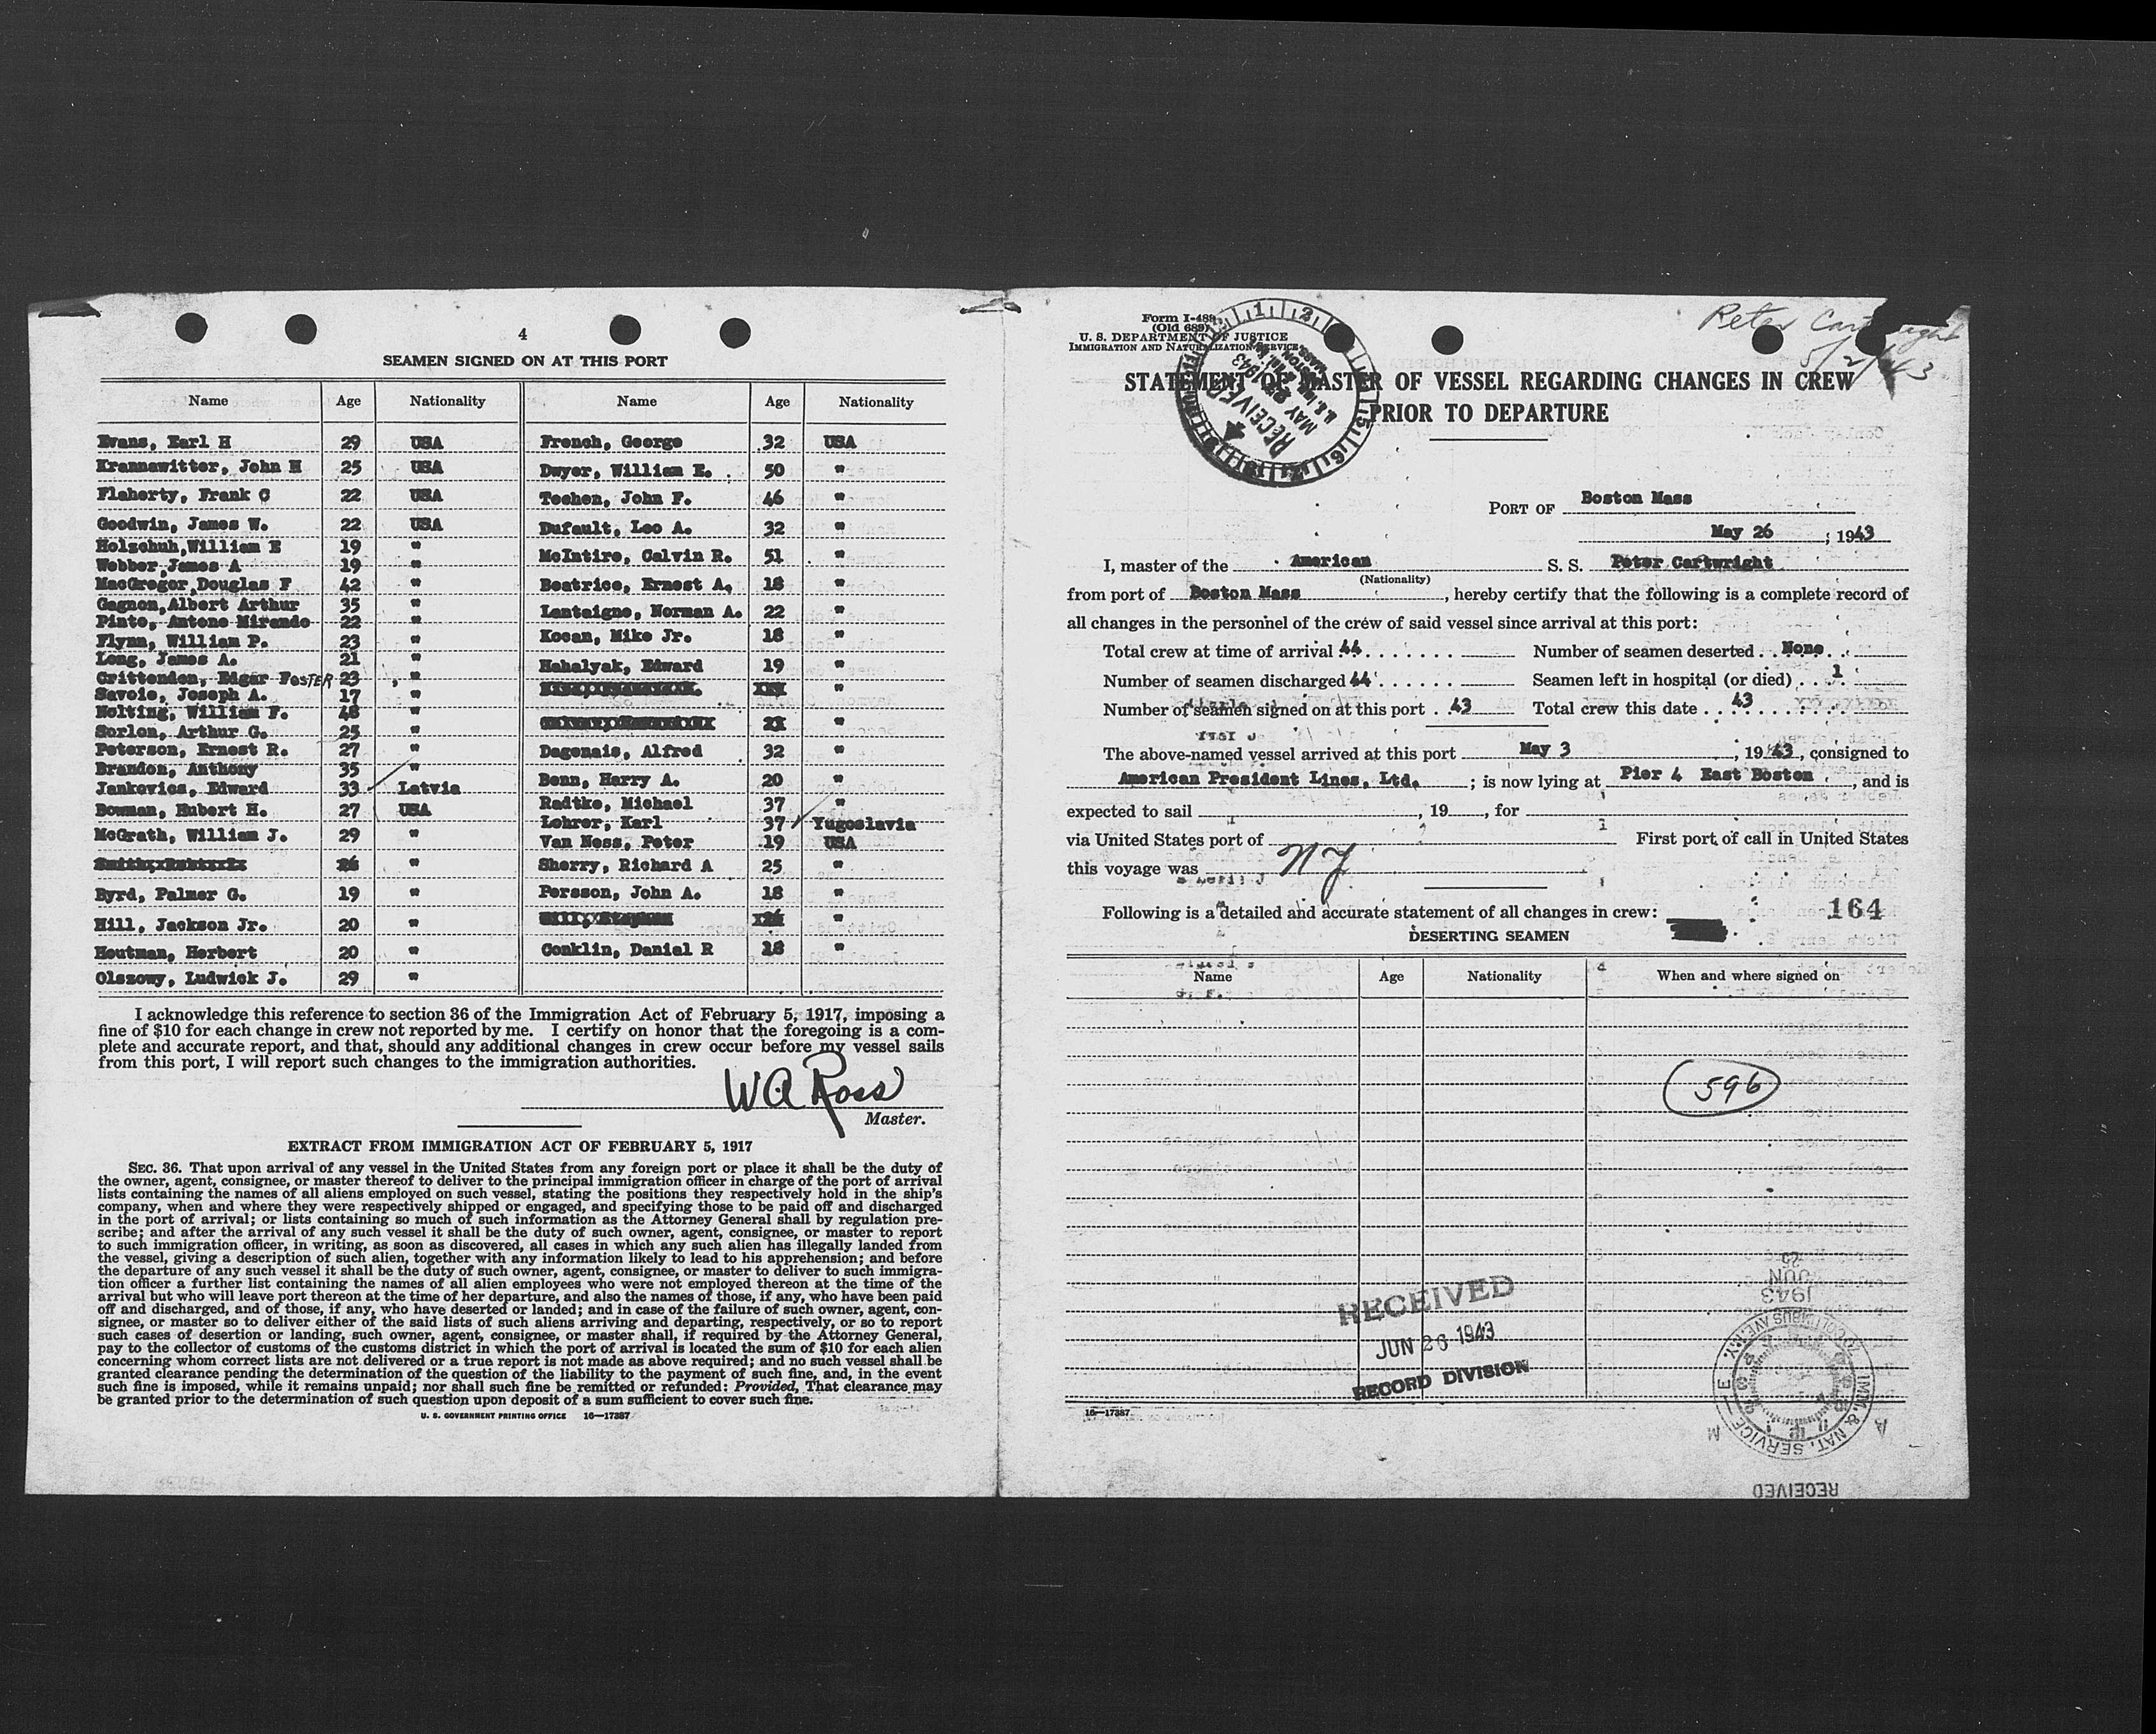 4
SEAMEN SIGNED ON AT THIS PORT
Name Age Nationality Name Age Nationality
Evans, Earl H 29 USA French, George 32 USA
Krannawitter, John H 25 USA Dwyer, William E. 50 "
Flaherty, Frank C 22 USA Teehen, John F. 46 "
Goodwin, James W. 22 USA Dufault, Leo A. 32 "
Holzchuh,William E 19 " McIntire, Calvin R. 51 "
Webber,James A 19 "
MacGregor,Douglas F 42 " Beatrice, Ernest A. 18 "
Gagnon,Albert Arthur 35 " Lantaigne, Norman A. 22 "
Pinto, Antone Mirando 22 "
Flynn, William P. 23 " Kocan, Mike Jr. 18 "
Long, James A. 21 " Hahalyak, Edward 19 "
Crittenden, Edgar FOSTER 23 "
Savoie, Joseph A. 17 " "
Nolting, William F. 48 "
Sorlon, Arthur G. 25 " 21 "
Peterson, Ernest R. 27 " Dagenais, Alfred 32 "
Brandon, Anthony 35 "
Jankovics, Edward 33 Latvia Benn, Harry A. 20 "
Bowman, Hubert H. 27 USA Radtke, Michael 37 "
Lohrer, Karl 37 Yugoslavia
McGrath, William J. 29 " Van Ness, Peter 19 USA
26 " Sherry, Richard A 25 "
Byrd, Palmer G. 19 " Persson, John A. 18 "
Hill, Jackson Jr. 20 " "
Houtman, Herbert 20 " Conklin, Danial R 18 "
Olszowy, Ludwick J. 29 "
I acknowledge this reference to section 36 of the Immigration Act of February 5, 1917, imposing a
fine of $10 for each change in crew not reported by me. I certify on honor that the foregoing is a com-
plete and accurate report, and that, should any additional changes in crew occur before my vessel sails
from this port, I will report such changes to the immigration authorities.
W A Ross
Master.
EXTRACT FROM IMMIGRATION ACT OF FEBRUARY 5, 1917
SEC. 36. That upon arrival of any vessel in the United States from any foreign port or place it shall be the duty of
the owner, agent, consignee, or master thereof to deliver to the principal immigration officer in charge of the port of arrival
lists containing the names of all aliens employed on such vessel, stating the positions they respectively hold in the ship's
company, when and where they were respectively shipped or engaged, and specifying those to be paid off and discharged
in the port of arrival; or lists containing so much of such information as the Attorney General shall by regulation pre-
scribe; and after the arrival of any such vessel it shall be the duty of such owner, agent, consignee, or master to report
to such immigration officer, in writing, as soon as discovered, all cases in which any such alien has illegally landed from
the vessel, giving a description of such alien, together with any information likely to lead to his apprehension; and before
the departure of any such vessel it shall be the duty of such owner, agent, consignee, or master to deliver to such immigra-
tion officer a further list containing the names of all alien employees who were not employed thereon at the time of the
arrival but who will leave port thereon at the time of her departure, and also the names of those, if any, who have been paid
off and discharged, and of those, if any, who have deserted or landed; and in case of the failure of such owner, agent, con-
signee, or master so to deliver either of the said lists of such aliens arriving and departing, respectively, or so to report
such cases of desertion or landing, such owner, agent, consignee, or master shall, if required by the Attorney General,
pay to the collector of customs of the customs district in which the port of arrival is located the sum of $10 for each alien
concerning whom correct lists are not delivered or a true report is not made as above required; and no such vessel shall be
granted clearance pending the determination of the question of the liability to the payment of such fine, and, in the event
such fine is imposed, while it remains unpaid; nor shall such fine be remitted or refunded: Provided, That clearance may
be granted prior to the determination of such question upon deposit of a sum sufficient to cover such fine.
U. S. GOVERNMENT PRINTING OFFICE 16—17387
Form I-489
(Old 689)
U. S. DEPARTMENT OF JUSTICE
IMMIGRATION AND NATURALIZATION SERVICE
RECEIVED
MAY 1943
Peter Cartwright
5/2/43
STATEMENT OF MASTER OF VESSEL REGARDING CHANGES IN CREW
PRIOR TO DEPARTURE
PORT OF Boston Mass
May 26, 1943
I, master of the American S. S. Peter Cartwright
(Nationality)
from port of Boston Mass, hereby certify that the following is a complete record of
all changes in the personnel of the crew of said vessel since arrival at this port:
Total crew at time of arrival 44 Number of seamen deserted None
Number of seamen discharged 44 Seamen left in hospital (or died) 1
Number of seamen signed on at this port 43 Total crew this date 43
The above-named vessel arrived at this port May 3, 1943, consigned to
American President Lines, Ltd.; is now lying at Pier 4 East Boston, and is
expected to sail , 19 , for
via United States port of First port of call in United States
this voyage was NY
Following is a detailed and accurate statement of all changes in crew: 164
DESERTING SEAMEN
Name Age Nationality When and where signed on
596
RECEIVED
JUN 26 1943
RECORD DIVISION
25
JUN
1943
IMM. & NAT. SERVICE — E. COLUMBUS AVE. N.Y.
A M
RECEIVED
16—17387